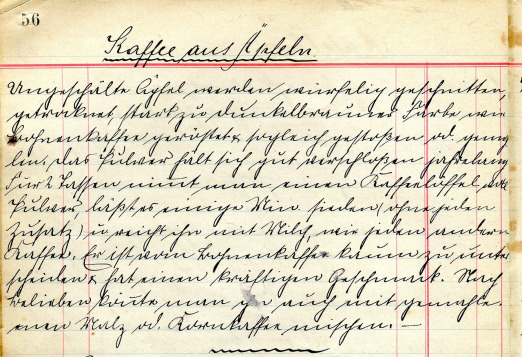 56
Kaffee aus Äpfeln.
Ungeschälte Äpfel werden würfelig geschnitten,
getrocknet, stark zu dunkelbrauner Farbe wie
Bohnenkaffee geröstet & sogleich gestoßen od. gemah
len. Das Pulver hält sich gut verschloßen jahrelang
Für 2 Tassen nimt man einen Kaffeelöffel voll
Pulver, läßt es einige Min. sieden (ohne jeden
Zusatz) u reicht ihn mit Milch wie jeden andern
Kaffee. Er ist vom Bohnenkaffee kaum zu unter
scheiden & hat einen kräftigen Geschmack. Nach
Belieben könte man ihn auch mit gemahle-
enen Malz od. Kornkaffee mischen. —